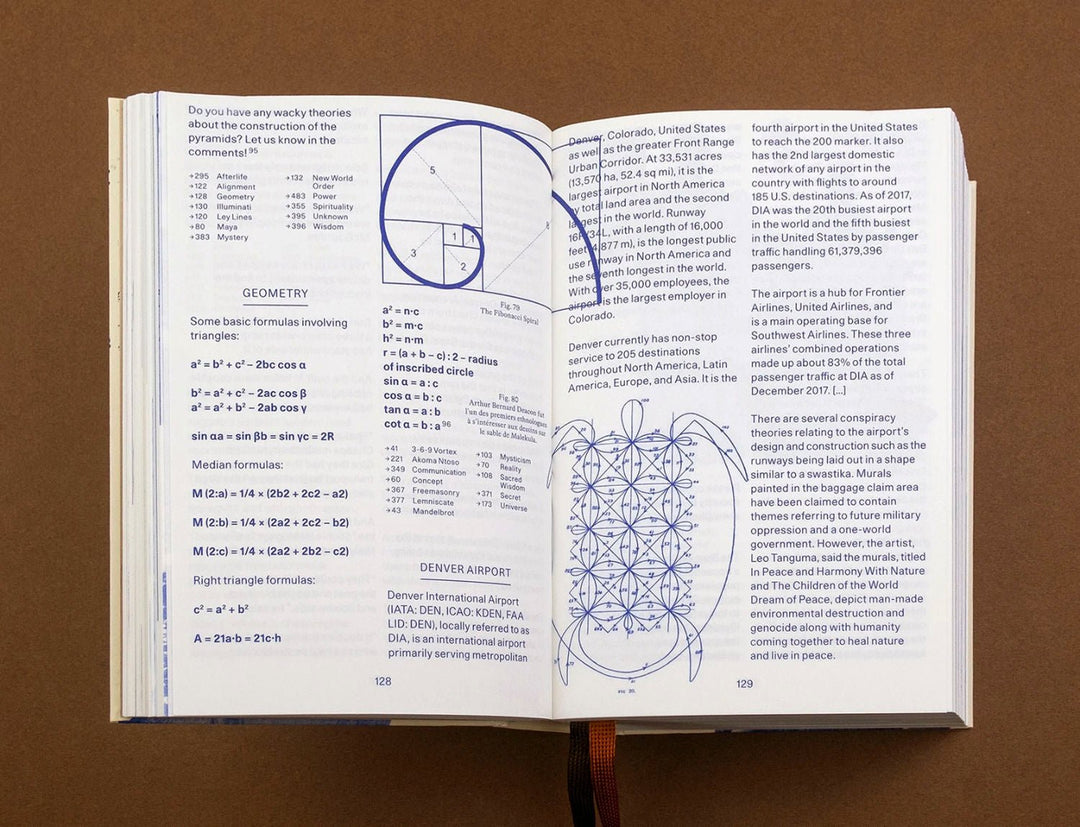 Do you have any wacky theories
about the construction of the
pyramids? Let us know in the
comments! 95
→295 Afterlife
→122 Alignment
→128 Geometry
→130 Illuminati
→120 Ley Lines
→80 Maya
→383 Mystery
→132 New World
Order
→483 Power
→355 Spirituality
→395 Unknown
→396 Wisdom
GEOMETRY
Some basic formulas involving
triangles:
a² = b² + c² – 2bc cos α
b² = a² + c² – 2ac cos β
a² = a² + b² – 2ab cos γ
sin αa = sin βb = sin γc = 2R
Median formulas:
M (2:a) = 1/4 × (2b2 + 2c2 – a2)
M (2:b) = 1/4 × (2a2 + 2c2 – b2)
M (2:c) = 1/4 × (2a2 + 2b2 – c2)
Right triangle formulas:
c² = a² + b²
A = 21a·b = 21c·h
5
8
3
1
1
2
Fig. 79
The Fibonacci Spiral
a² = n·c
b² = m·c
h² = n·m
r = (a + b – c) : 2 – radius
of inscribed circle
sin α = a : c
cos α = b : c
tan α = a : b
cot α = b : a 96
Fig. 80
Arthur Bernard Deacon fut
l'un des premiers ethnologues
à s'intéresser aux dessins sur
le sable de Malekula.
→41 3-6-9 Vortex
→221 Akoma Ntoso
→349 Communication
→60 Concept
→367 Freemasonry
→377 Lemniscate
→43 Mandelbrot
→103 Mysticism
→70 Reality
→108 Sacred
Wisdom
→371 Secret
→173 Universe
DENVER AIRPORT
Denver International Airport
(IATA: DEN, ICAO: KDEN, FAA
LID: DEN), locally referred to as
DIA, is an international airport
primarily serving metropolitan
128
Denver, Colorado, United States
as well as the greater Front Range
Urban Corridor. At 33,531 acres
(13,570 ha, 52.4 sq mi), it is the
largest airport in North America
by total land area and the second
largest in the world. Runway
16R/34L, with a length of 16,000
feet (4,877 m), is the longest public
use runway in North America and
the seventh longest in the world.
With over 35,000 employees, the
airport is the largest employer in
Colorado.
Denver currently has non-stop
service to 205 destinations
throughout North America, Latin
America, Europe, and Asia. It is the
FIG 20.
fourth airport in the United States
to reach the 200 marker. It also
has the 2nd largest domestic
network of any airport in the
country with flights to around
185 U.S. destinations. As of 2017,
DIA was the 20th busiest airport
in the world and the fifth busiest
in the United States by passenger
traffic handling 61,379,396
passengers.
The airport is a hub for Frontier
Airlines, United Airlines, and
is a main operating base for
Southwest Airlines. These three
airlines' combined operations
made up about 83% of the total
passenger traffic at DIA as of
December 2017. [...]
There are several conspiracy
theories relating to the airport's
design and construction such as the
runways being laid out in a shape
similar to a swastika. Murals
painted in the baggage claim area
have been claimed to contain
themes referring to future military
oppression and a one-world
government. However, the artist,
Leo Tanguma, said the murals, titled
In Peace and Harmony With Nature
and The Children of the World
Dream of Peace, depict man-made
environmental destruction and
genocide along with humanity
coming together to heal nature
and live in peace.
129